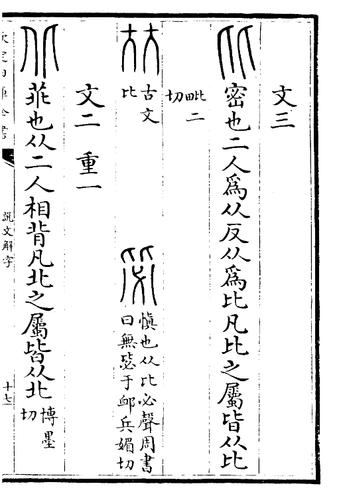 文三
密也二人爲从反从爲比凡比之屬皆从比
毗二切
古文比
慎也从比必聲周書曰無毖于卹兵媚切
文二 重一
菲也从二人相背凡北之屬皆从北博墨切
說文解字
十七